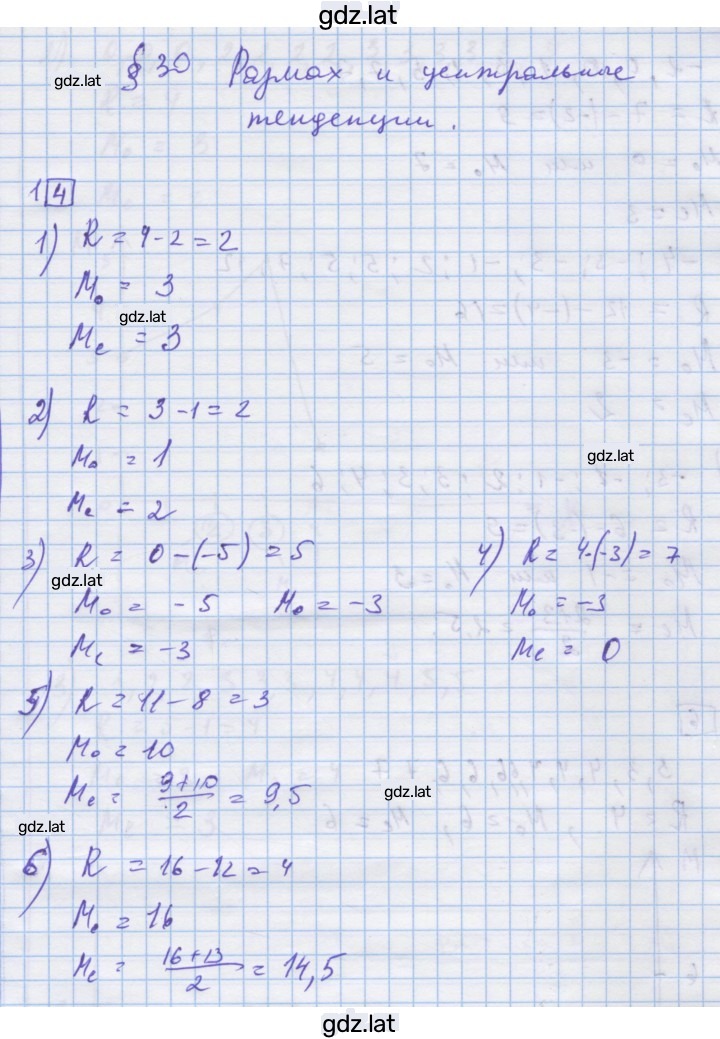 gdz.lat
gdz.lat
§ 30 Размах и центральные
тенденции.
1 4
1) R = 4-2 = 2
Mo = 3
gdz.lat
Me = 3
2) R = 3-1 = 2
Mo = 1
gdz.lat
Me = 2
3) R = 0-(-5) = 5
gdz.lat
Mo = -5 Mo = -3
Me = -3
4) R = 4-(-3) = 7
Mo = -3
Me = 0
5) R = 11-8 = 3
Mo = 10
Me = (9+10)/2 = 9,5
gdz.lat
gdz.lat
6) R = 16-12 = 4
Mo = 16
Me = (16+13)/2 = 14,5
gdz.lat